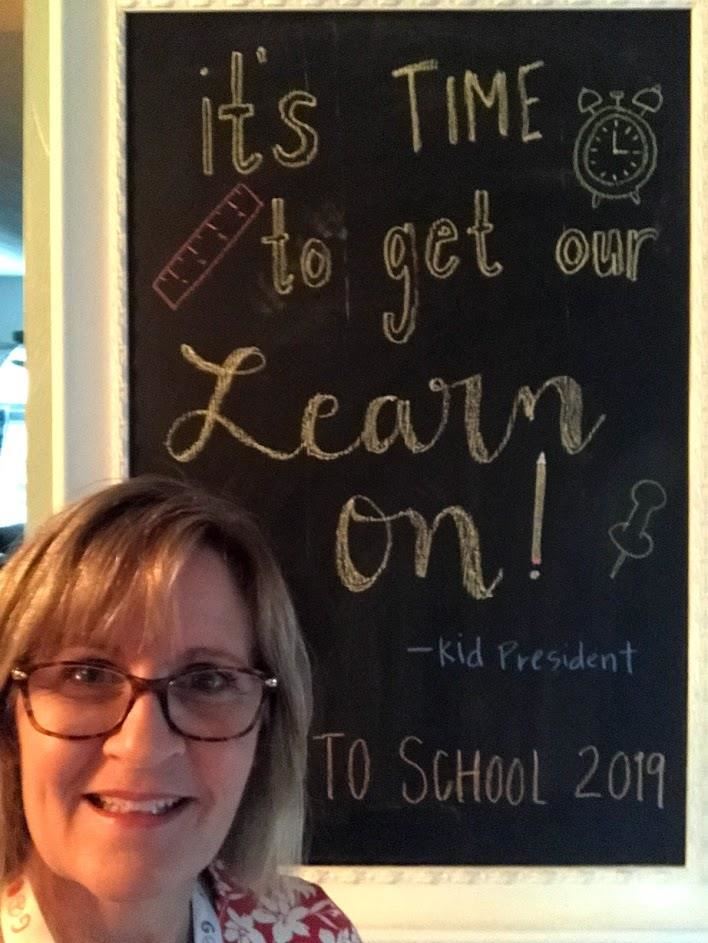 it's TIME
to get our
Learn
on!
-Kid President
TO SCHOOL 2019